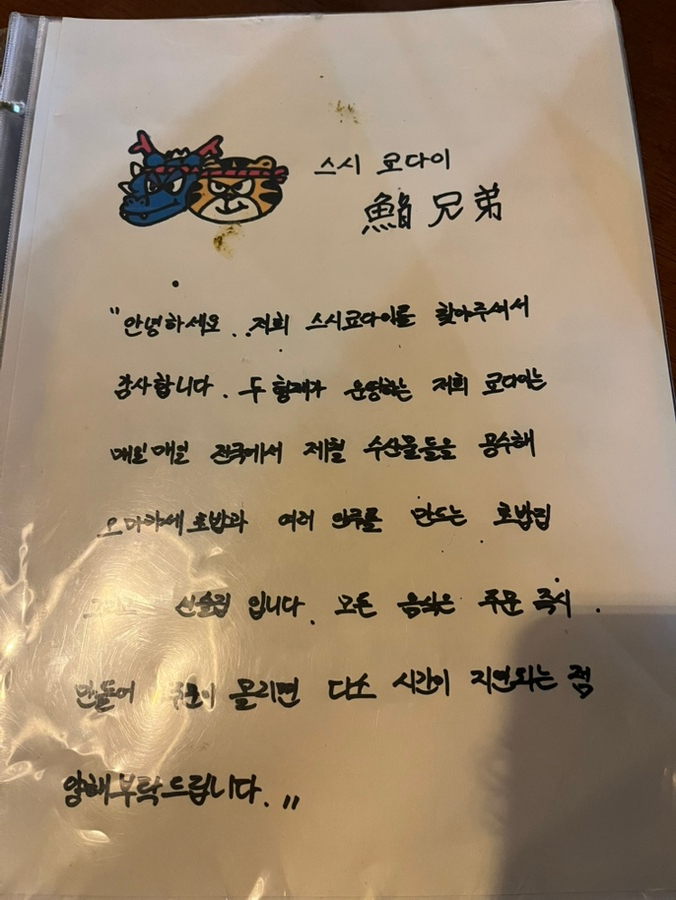 스시 쿄다이
鮨 兄弟
"안녕하세요. 저희 스시쿄다이를 찾아주셔서
감사합니다. 두 형제가 운영하는 저희 쿄다이는
매일매일 전국에서 제철 수산물들을 공수해
오마카세 초밥과 여러 안주를 만드는 초밥집
선술집 입니다. 모든 음식은 주문 즉시
만들어 주문이 몰리면 다소 시간이 지연되는 점
양해부탁드립니다."